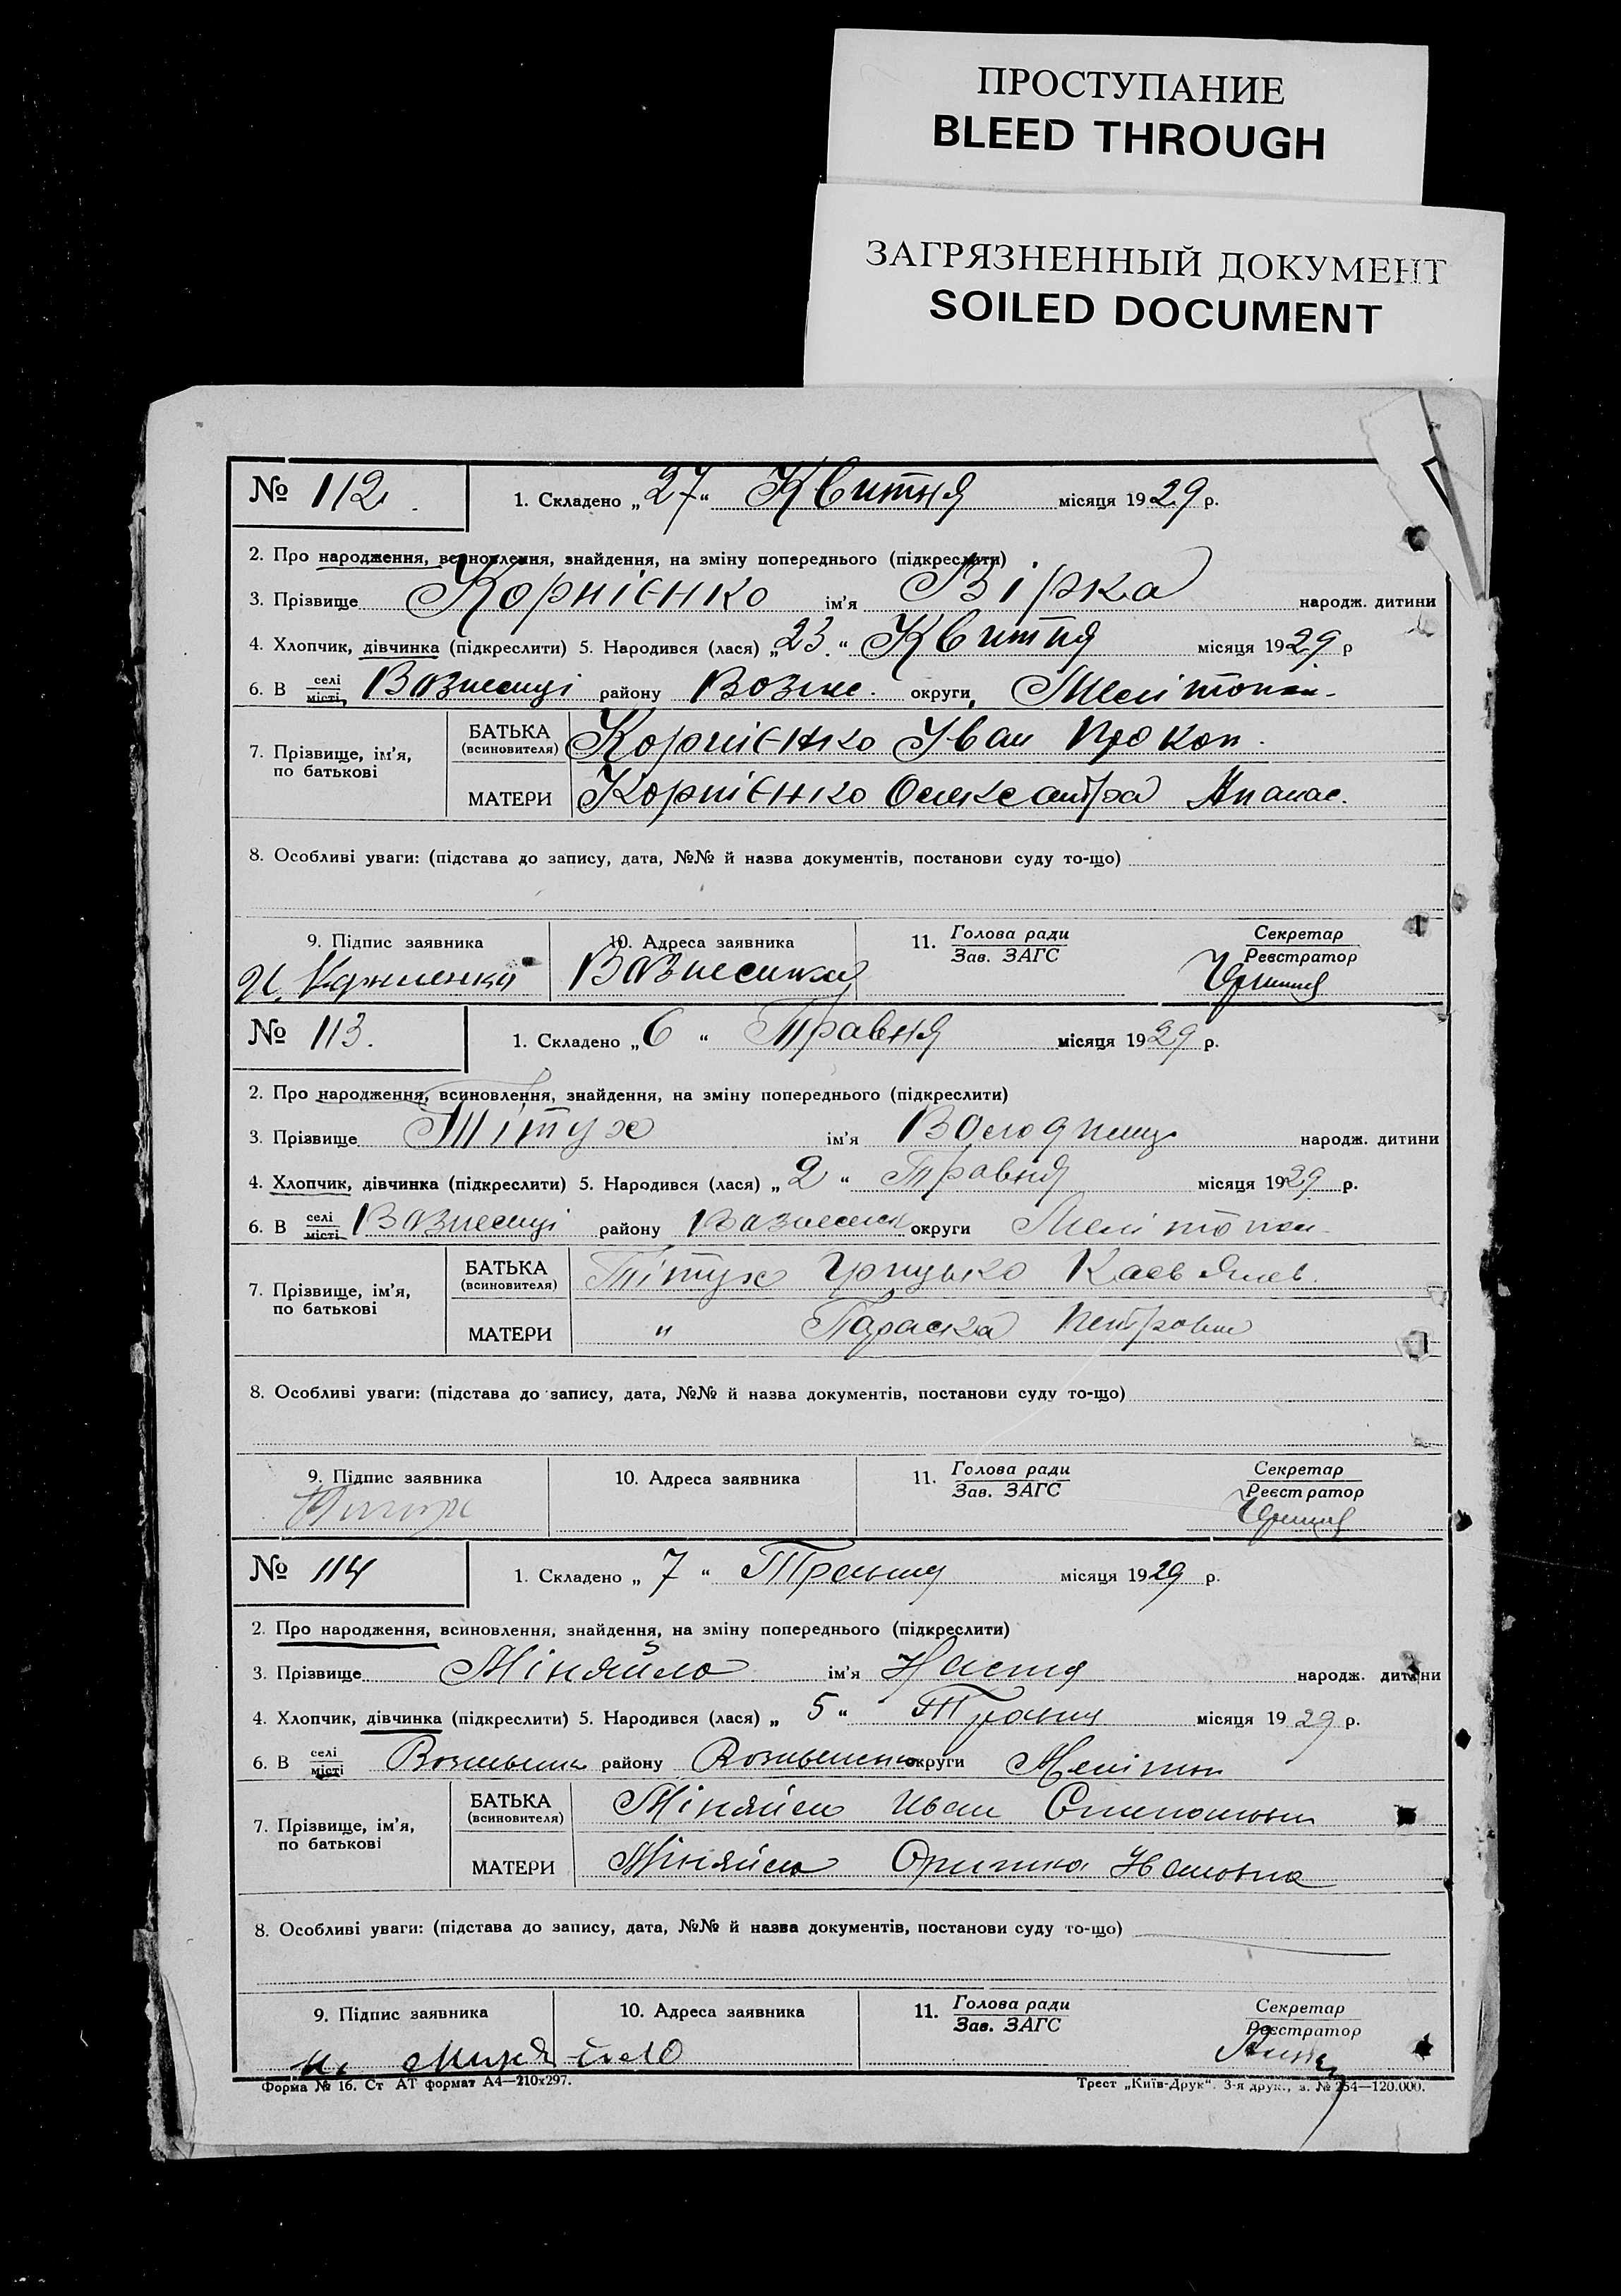 ПРОСТУПАНИЕ
BLEED THROUGH
ЗАГРЯЗНЕННЫЙ ДОКУМЕНТ
SOILED DOCUMENT
№ 112. 1. Складено „27“ Квитня місяця 1929 р.
2. Про народження, всиновлення, знайдення, на зміну попереднього (підкреслити)
3. Прізвище Корнієнко ім'я Вірка народж. дитини
4. Хлопчик, дівчинка (підкреслити) 5. Народився (лася) „23.“ Квитня місяця 1929 р
6. В селі місті Вазнесенці району Возне. округи, Мелітопол.
7. Прізвище, ім'я, по батькові
БАТЬКА (всиновителя) Корнієнко Іван Прокоп.
МАТЕРИ Корнієнко Олександра Апанас.
8. Особливі уваги: (підстава до запису, дата, №№ й назва документів, постанови суду то-що)
9. Підпис заявника 10. Адреса заявника 11. Голова ради Зав. ЗАГС Секретар Реєстратор
№ 113. 1. Складено „6“ Травня місяця 1929 р.
2. Про народження, всиновлення, знайдення, на зміну попереднього (підкреслити)
3. Прізвище Пітух ім'я Володимир народж. дитини
4. Хлопчик, дівчинка (підкреслити) 5. Народився (лася) „2“ Травня місяця 1929 р.
6. В селі місті Вазнесенці району округи Мелітопол.
7. Прізвище, ім'я, по батькові
БАТЬКА (всиновителя) Пітух Грицько
МАТЕРИ " Параска Петровна
8. Особливі уваги: (підстава до запису, дата, №№ й назва документів, постанови суду то-що)
9. Підпис заявника 10. Адреса заявника 11. Голова ради Зав. ЗАГС Секретар Реєстратор
№ 114 1. Складено „7“ Травня місяця 1929 р.
2. Про народження, всиновлення, знайдення, на зміну попереднього (підкреслити)
3. Прізвище Міняйло ім'я Настя народж. дитини
4. Хлопчик, дівчинка (підкреслити) 5. Народився (лася) „5“ Травня місяця 1929 р.
6. В селі місті району округи Мелітоп
7. Прізвище, ім'я, по батькові
БАТЬКА (всиновителя) Міняйло Иван
МАТЕРИ Міняйло Оришка
8. Особливі уваги: (підстава до запису, дата, №№ й назва документів, постанови суду то-що)
9. Підпис заявника 10. Адреса заявника 11. Голова ради Зав. ЗАГС Секретар Реєстратор
И. Миняйло
Форма № 16. Ст АТ формат А4—210х297. Трест „Київ-Друк“. 3-я друк., з. № 254—120.000.